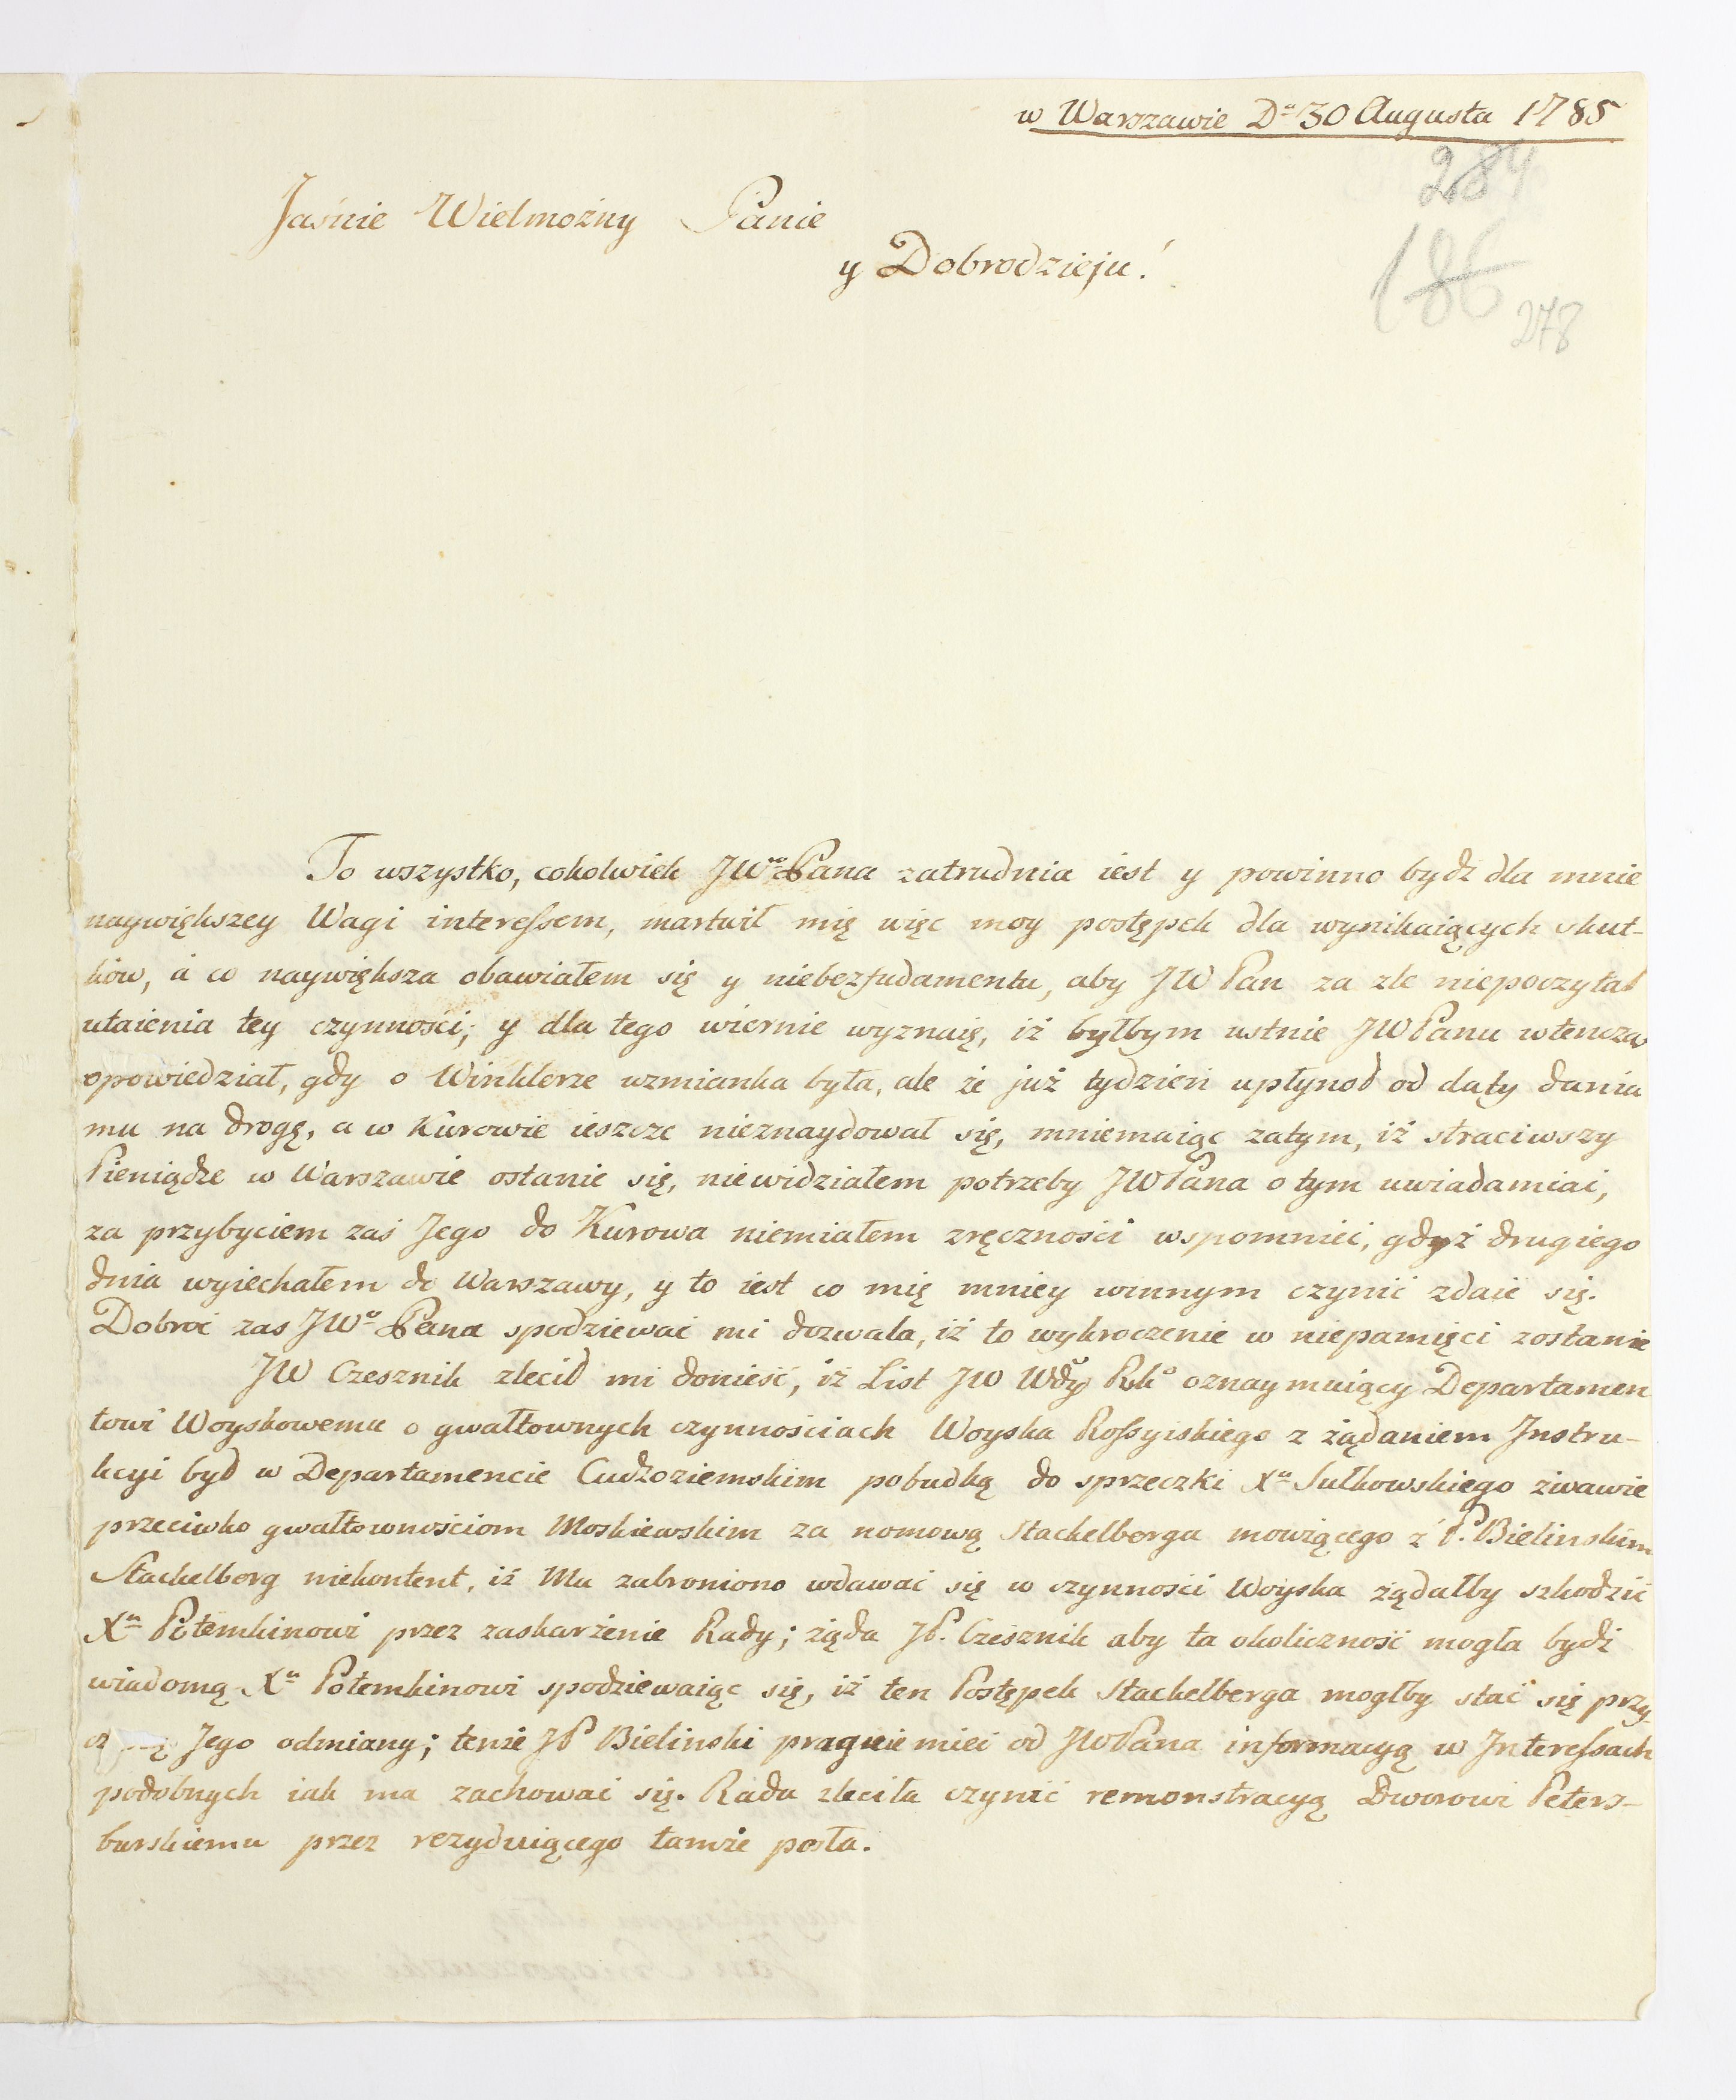 w Warszawie Dn 30 Augusta 1785
284
186
278
Jaśnie Wielmożny Panie
y Dobrodzieju!
To wszystko, cokolwiek JWo Pana zatrudnia iest y powinno bydź dla mnie
naywiększey Wagi interessem, martwił mię więc moy postępek dla wynikaiących skut-
ków, á co naywiększa obawiałem się y niebezfudamentu, aby JW Pan za złe niepoczytał
utaienia tey czynności; y dla tego wiernie wyznaię, iż byłbym ustnie JWPanu wtenczas
opowiedział, gdy o Winklerze wzmianka była, ale że już tydzień upłynoł od daty dania
mu na drogę, a w Kurowie ieszcze nieznaydował się, mniemaiąc zatym, iż straciwszy
Pieniądze w Warszawie ostanie się, niewidziałem potrzeby JWPana o tym uwiadamiać,
za przybyciem zaś Jego do Kurowa niemiałem zręczności wspomnieć, gdyż drugiego
dnia wyiechałem do Warszawy, y to iest co mię mniey winnym czynić zdaie się.
Dobroć zas JWo Pana spodziewać mi dozwala, iż to wykroczenie w niepamięci zostanie
JW Czesznik zlecił mi donieść, iż List JW Wdy Rko oznaymuiący Departamen
towi Woyskowemu o gwałtownych czynnościach Woyska Rossyiskiego z żądaniem Instru-
kcyi był w Departamencie Cudzoziemskim pobudką do sprzeczki Xa Sułkowskiego żwawie
przeciwko gwałtownościom Moskiewskim za nomową Stackelberga mowiącego z P. Bielinskim
Stackelberg niekontent, iż Mu zabroniono wdawać się w czynności Woyska żądałby szkodzić
Xu Potemkinowi przez zaskarżenie Rady; żąda JP. Czesznik aby ta okoliczność mogła bydź
wiadomą Xu Potemkinowi spodziewaiąc się, iż ten Postępek Stackelberga mogłby stać się przy-
Jego odmiany; tenże JP Bielinski pragnie mieć od JWPana informacyą w Interessach
podobnych iak ma zachować się. Rada zleciła czynić remonstracyą Dworowi Peters-
burskiemu przez rezyduiącego tamże posła.